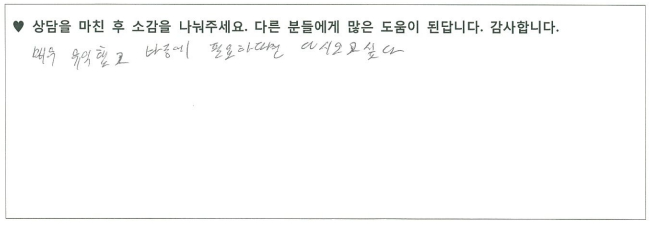 ♥ 상담을 마친 후 소감을 나눠주세요. 다른 분들에게 많은 도움이 된답니다. 감사합니다.
매우 유익했고 나중에 필요하다면 다시오고싶다